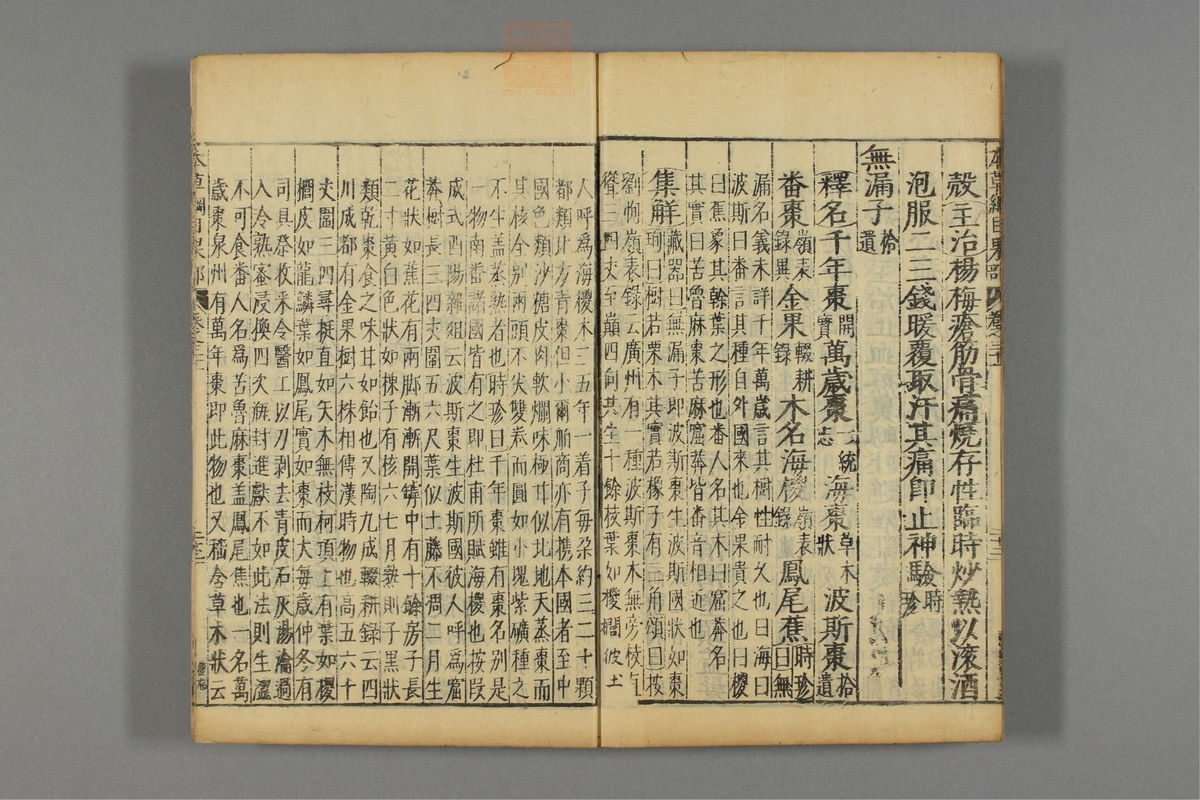 殼主治楊梅瘡筋骨痛燒存性臨時炒熱以滚酒
泡服二三錢暖覆取汗其痛即止神驗時珍
無漏子拾遺
釋名千年棗開寶萬歲棗一統志海棗草木狀波斯棗拾遺
番棗嶺表錄異金果輟耕錄木名海椶嶺表錄鳳尾蕉時珍曰無
漏名義未詳千年萬歲言其樹性耐久也曰海曰
波斯曰番言其種自外國來也金果貴之也曰椶
曰蕉象其幹葉之形也番人名其木曰窟莽名
其實曰苦魯麻棗苦麻窟莽皆番音相近也
集解藏器曰無漏子即波斯棗生波斯國狀如棗
珣曰樹若栗木其實若橡子有三角頌曰按
劉恂嶺表錄云廣州有一種波斯棗木無旁枝直
聳三四丈至巔四向共生十餘枝葉如椶櫚彼土
人呼爲海椶木三五年一着子每朶約三二十顆
都類北方青棗但小爾舶商亦有携本國者至中
國色類沙糖皮肉軟爛味極甘似北地天蒸棗而
其核全别兩頭不尖雙卷而圓如小塊紫礦種之
不生盖蒸熟者也時珍曰千年棗雖有棗名别是
一物南番諸國皆有之即杜甫所賦海椶也按段
成式酉陽雜俎云波斯棗生波斯國彼人呼爲窟
莽樹長三四丈圍五六尺葉似土藤不凋二月生
花狀如蕉花有兩脚漸漸開罅中有十餘房子長
二寸黃白色狀如楝子有核六七月熟則子黒狀
類乾棗食之味甘如飴也又陶九成輟耕録云四
川成都有金果樹六株相傳漢時物也高五六十
丈圍三四尋挺直如矢木無枝柯頂上有葉如椶
櫚皮如龍鱗葉如鳳尾實如棗而大每歲仲冬有
司具祭收采令醫工以刀剥去青皮石灰湯瀹過
入冷熟蜜浸換四次缾封進獻不如此法則生澀
不可食番人名爲苦魯麻棗盖鳳尾蕉也一名萬
歲棗泉州有萬年棗即此物也又嵇含草木狀云